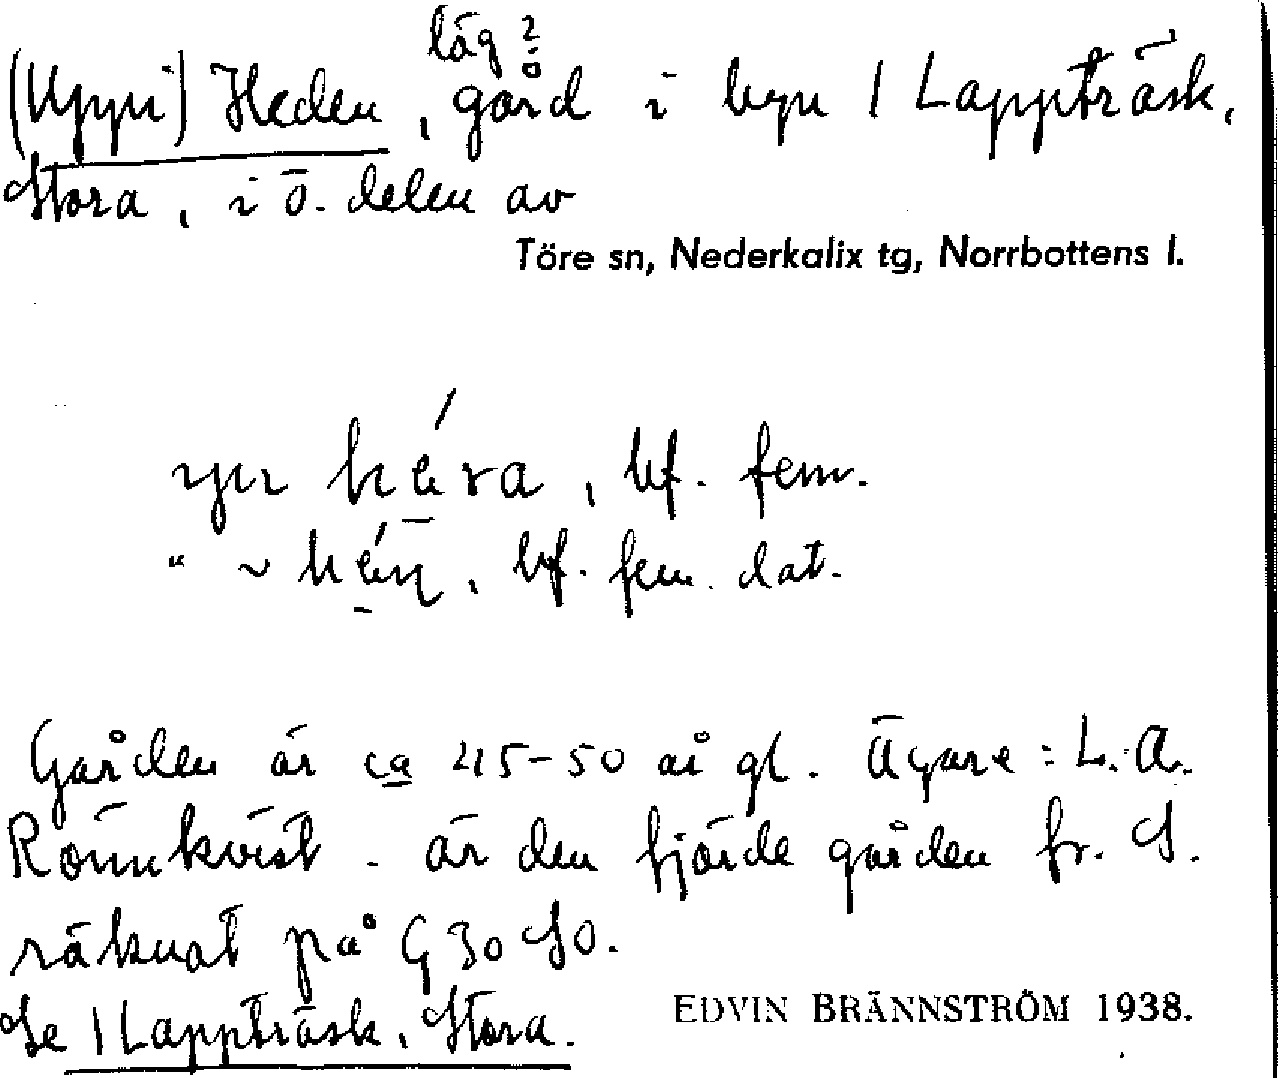 läg 2
(Uppi) Heden, gård i byn 1 Lappträsk,
Stora, i ö. delen av
Töre sn, Nederkalix tg, Norrbottens l.
bf. fem.
" ~ bf. fem. dat.
Gården är ca 45-50 år gl. Ägare: L. A.
Rönnkvist - är den fjärde gården fr. S.
räknat på G 30 SO.
Se 1 Lappträsk, Stora.
EDVIN BRÄNNSTRÖM 1938.